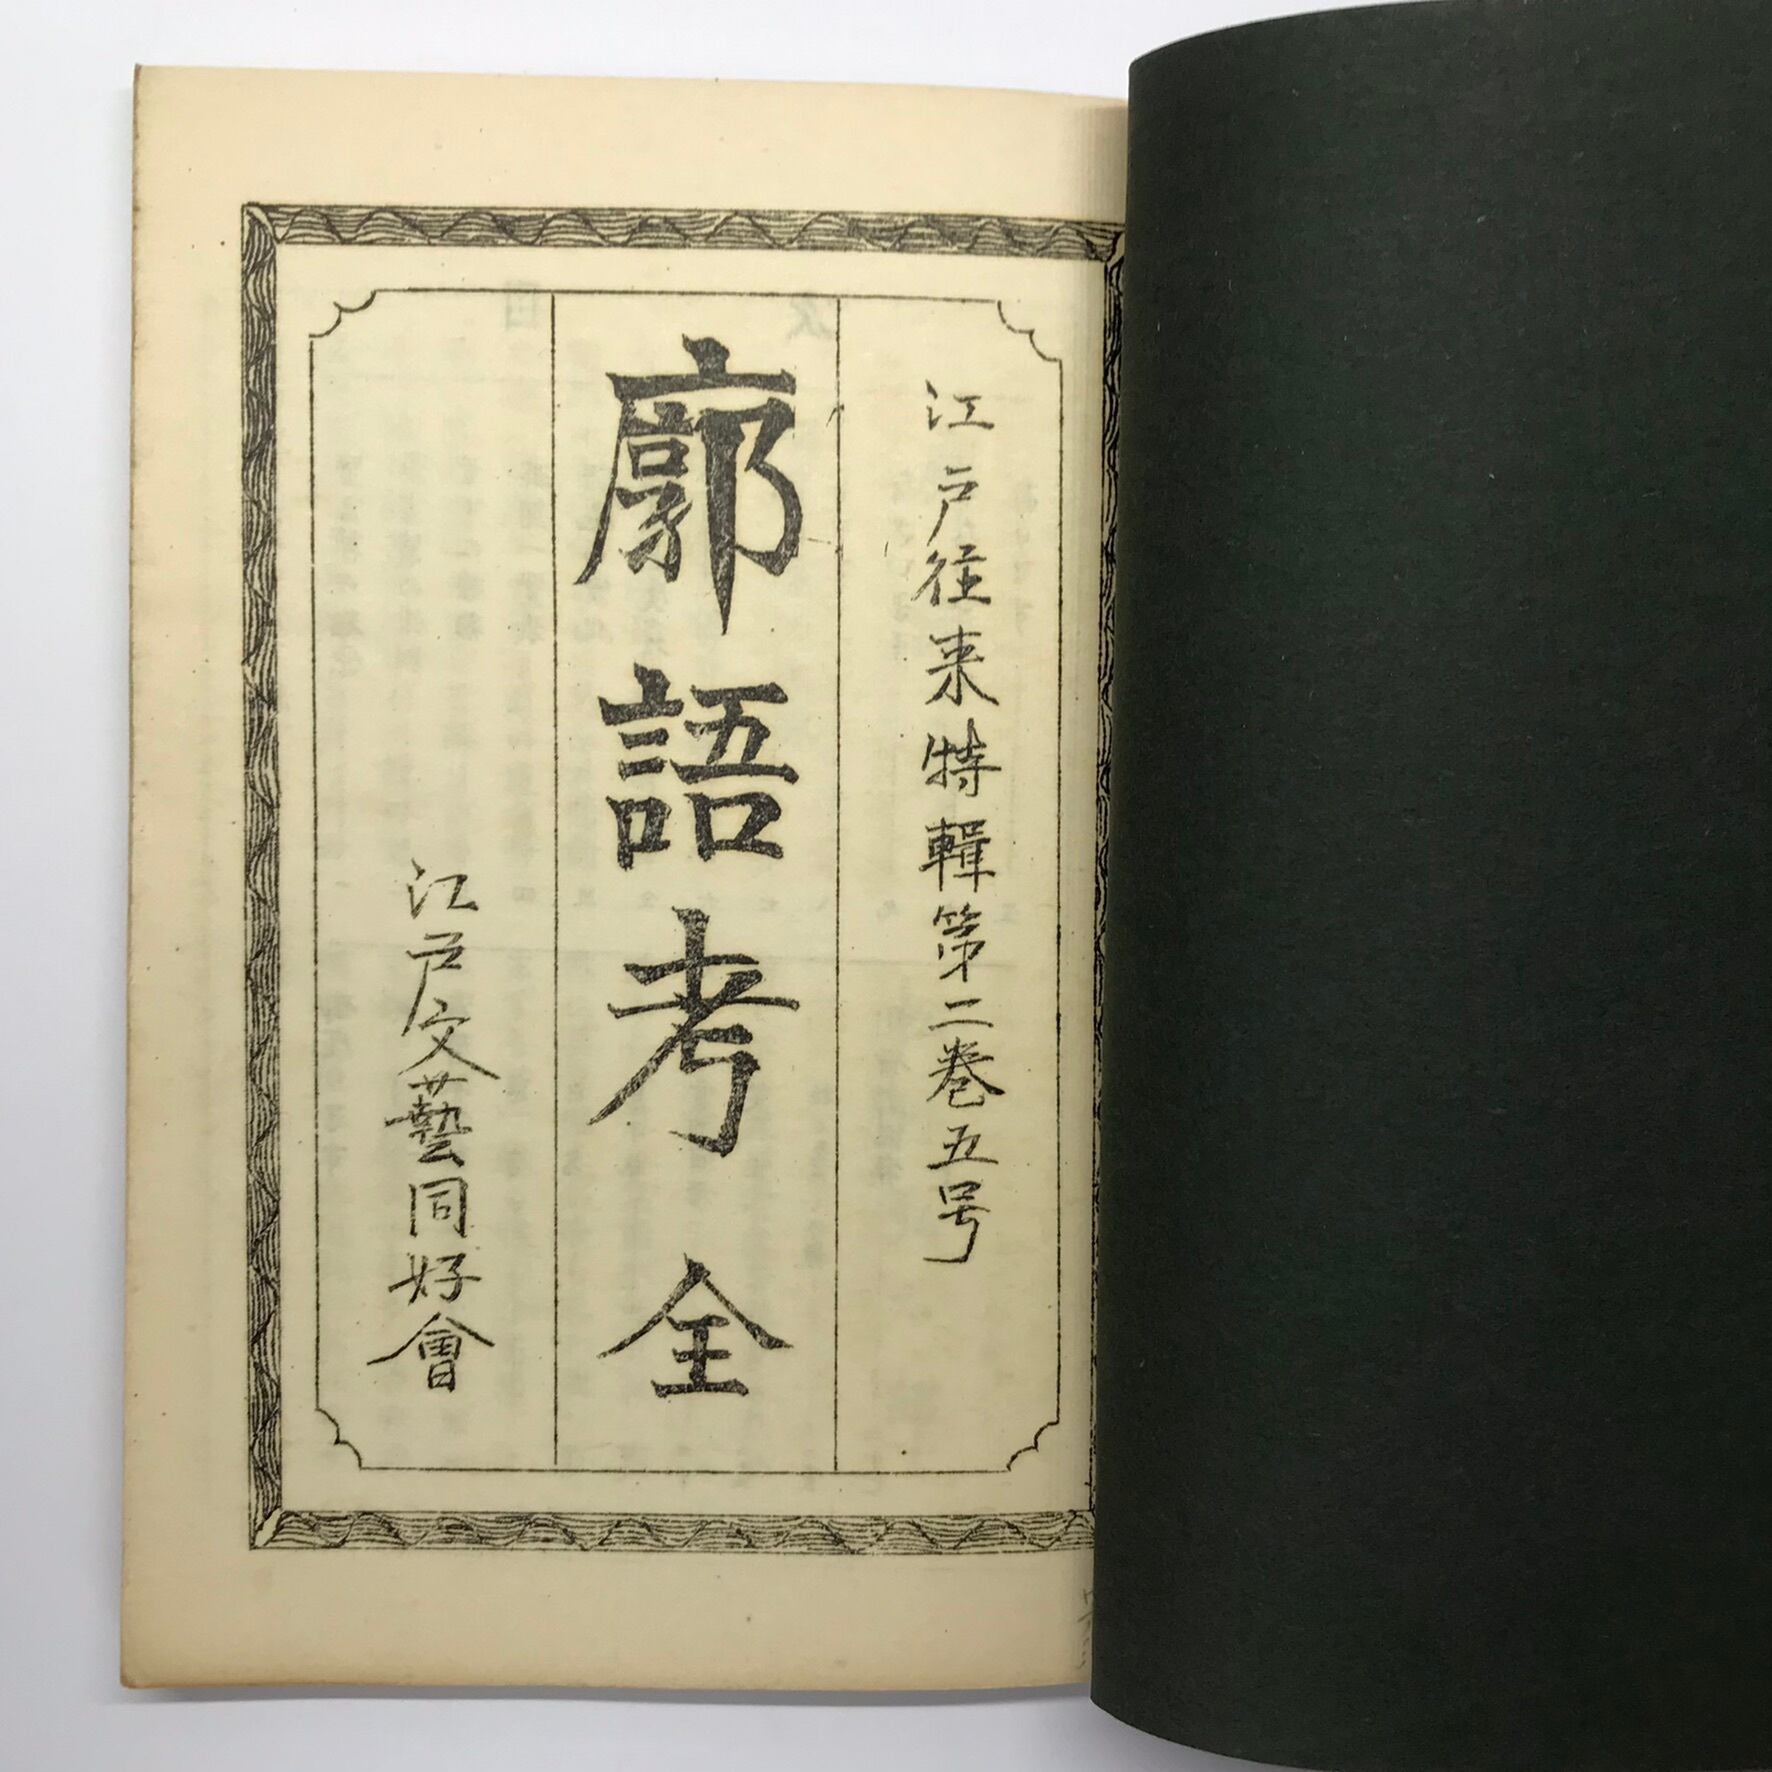 江戸往来特輯第二巻五号
廓語考全
江戸文藝同好會